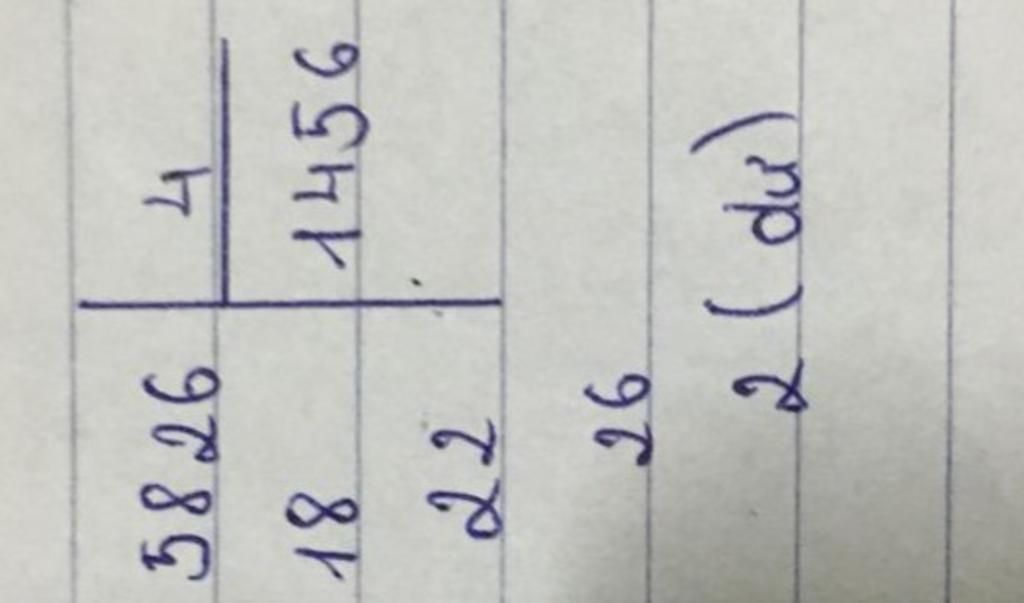 5826 4
18 1456
22
26
2 (dư)